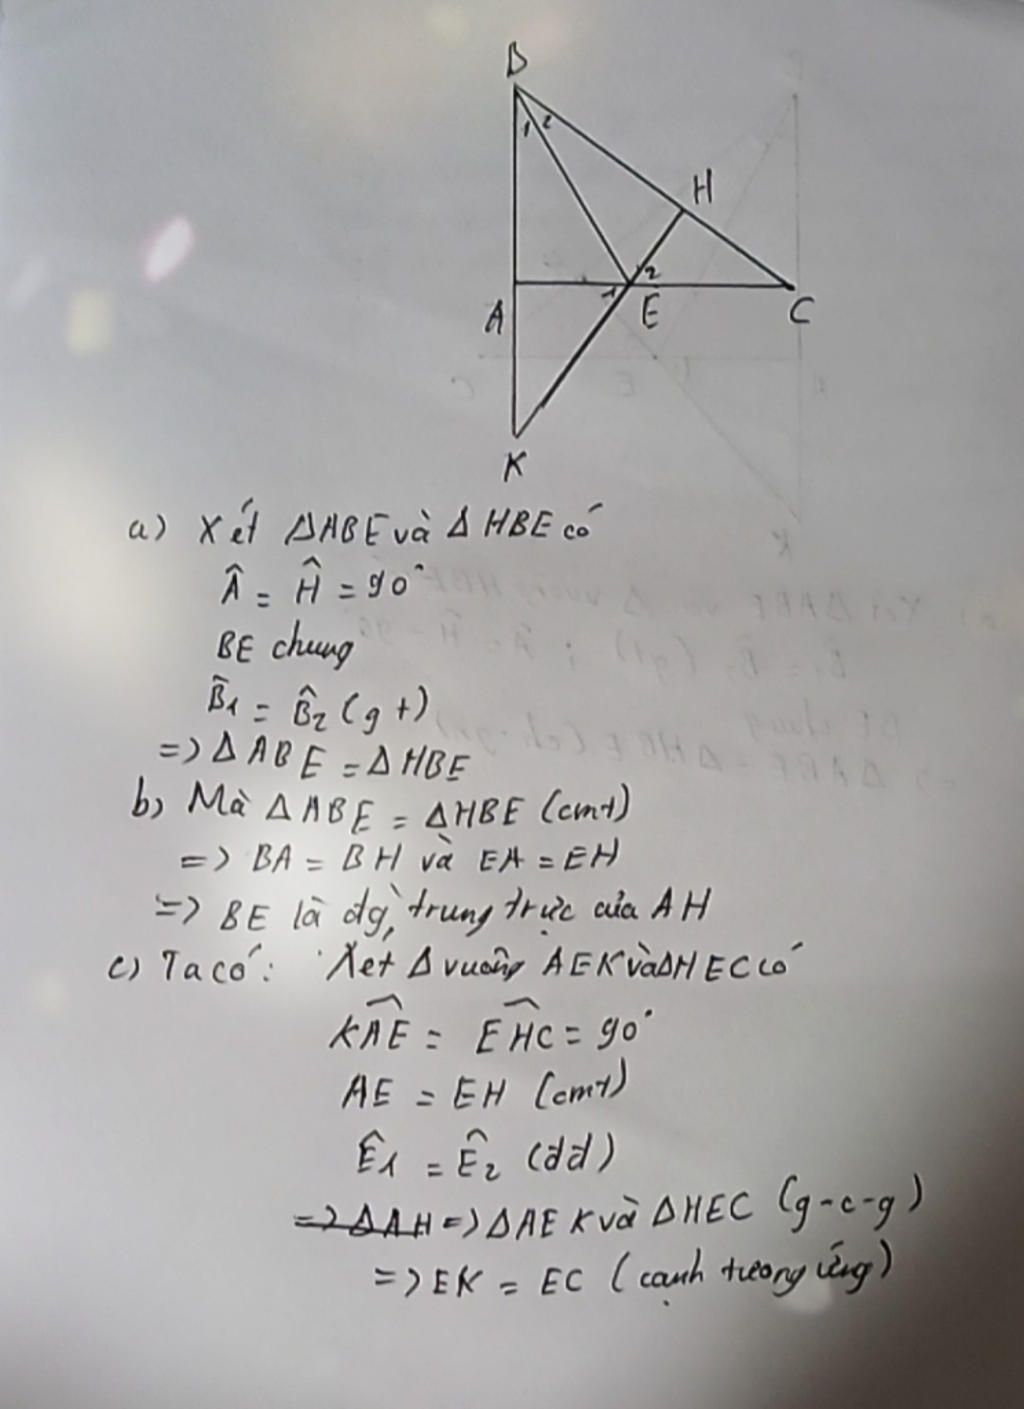 B
1 2
H
2
1
A
E
C
K
a) Xét ΔABE và ΔHBE có
Â = Ĥ = 90°
BE chung
B̂1 = B̂2 (gt)
=> ΔABE = ΔHBE
b) Mà ΔABE = ΔHBE (cmt)
=> BA = BH và EA = EH
=> BE là đg, trung trực của AH
c) Ta có: Xet Δ vuông AEK và ΔHEC có
KÂE = EĤC = 90°
AE = EH (cmt)
Ê1 = Ê2 (đđ)
=> ΔAH => ΔAEK và ΔHEC (g-c-g)
=> EK = EC (cạnh tương ứng)